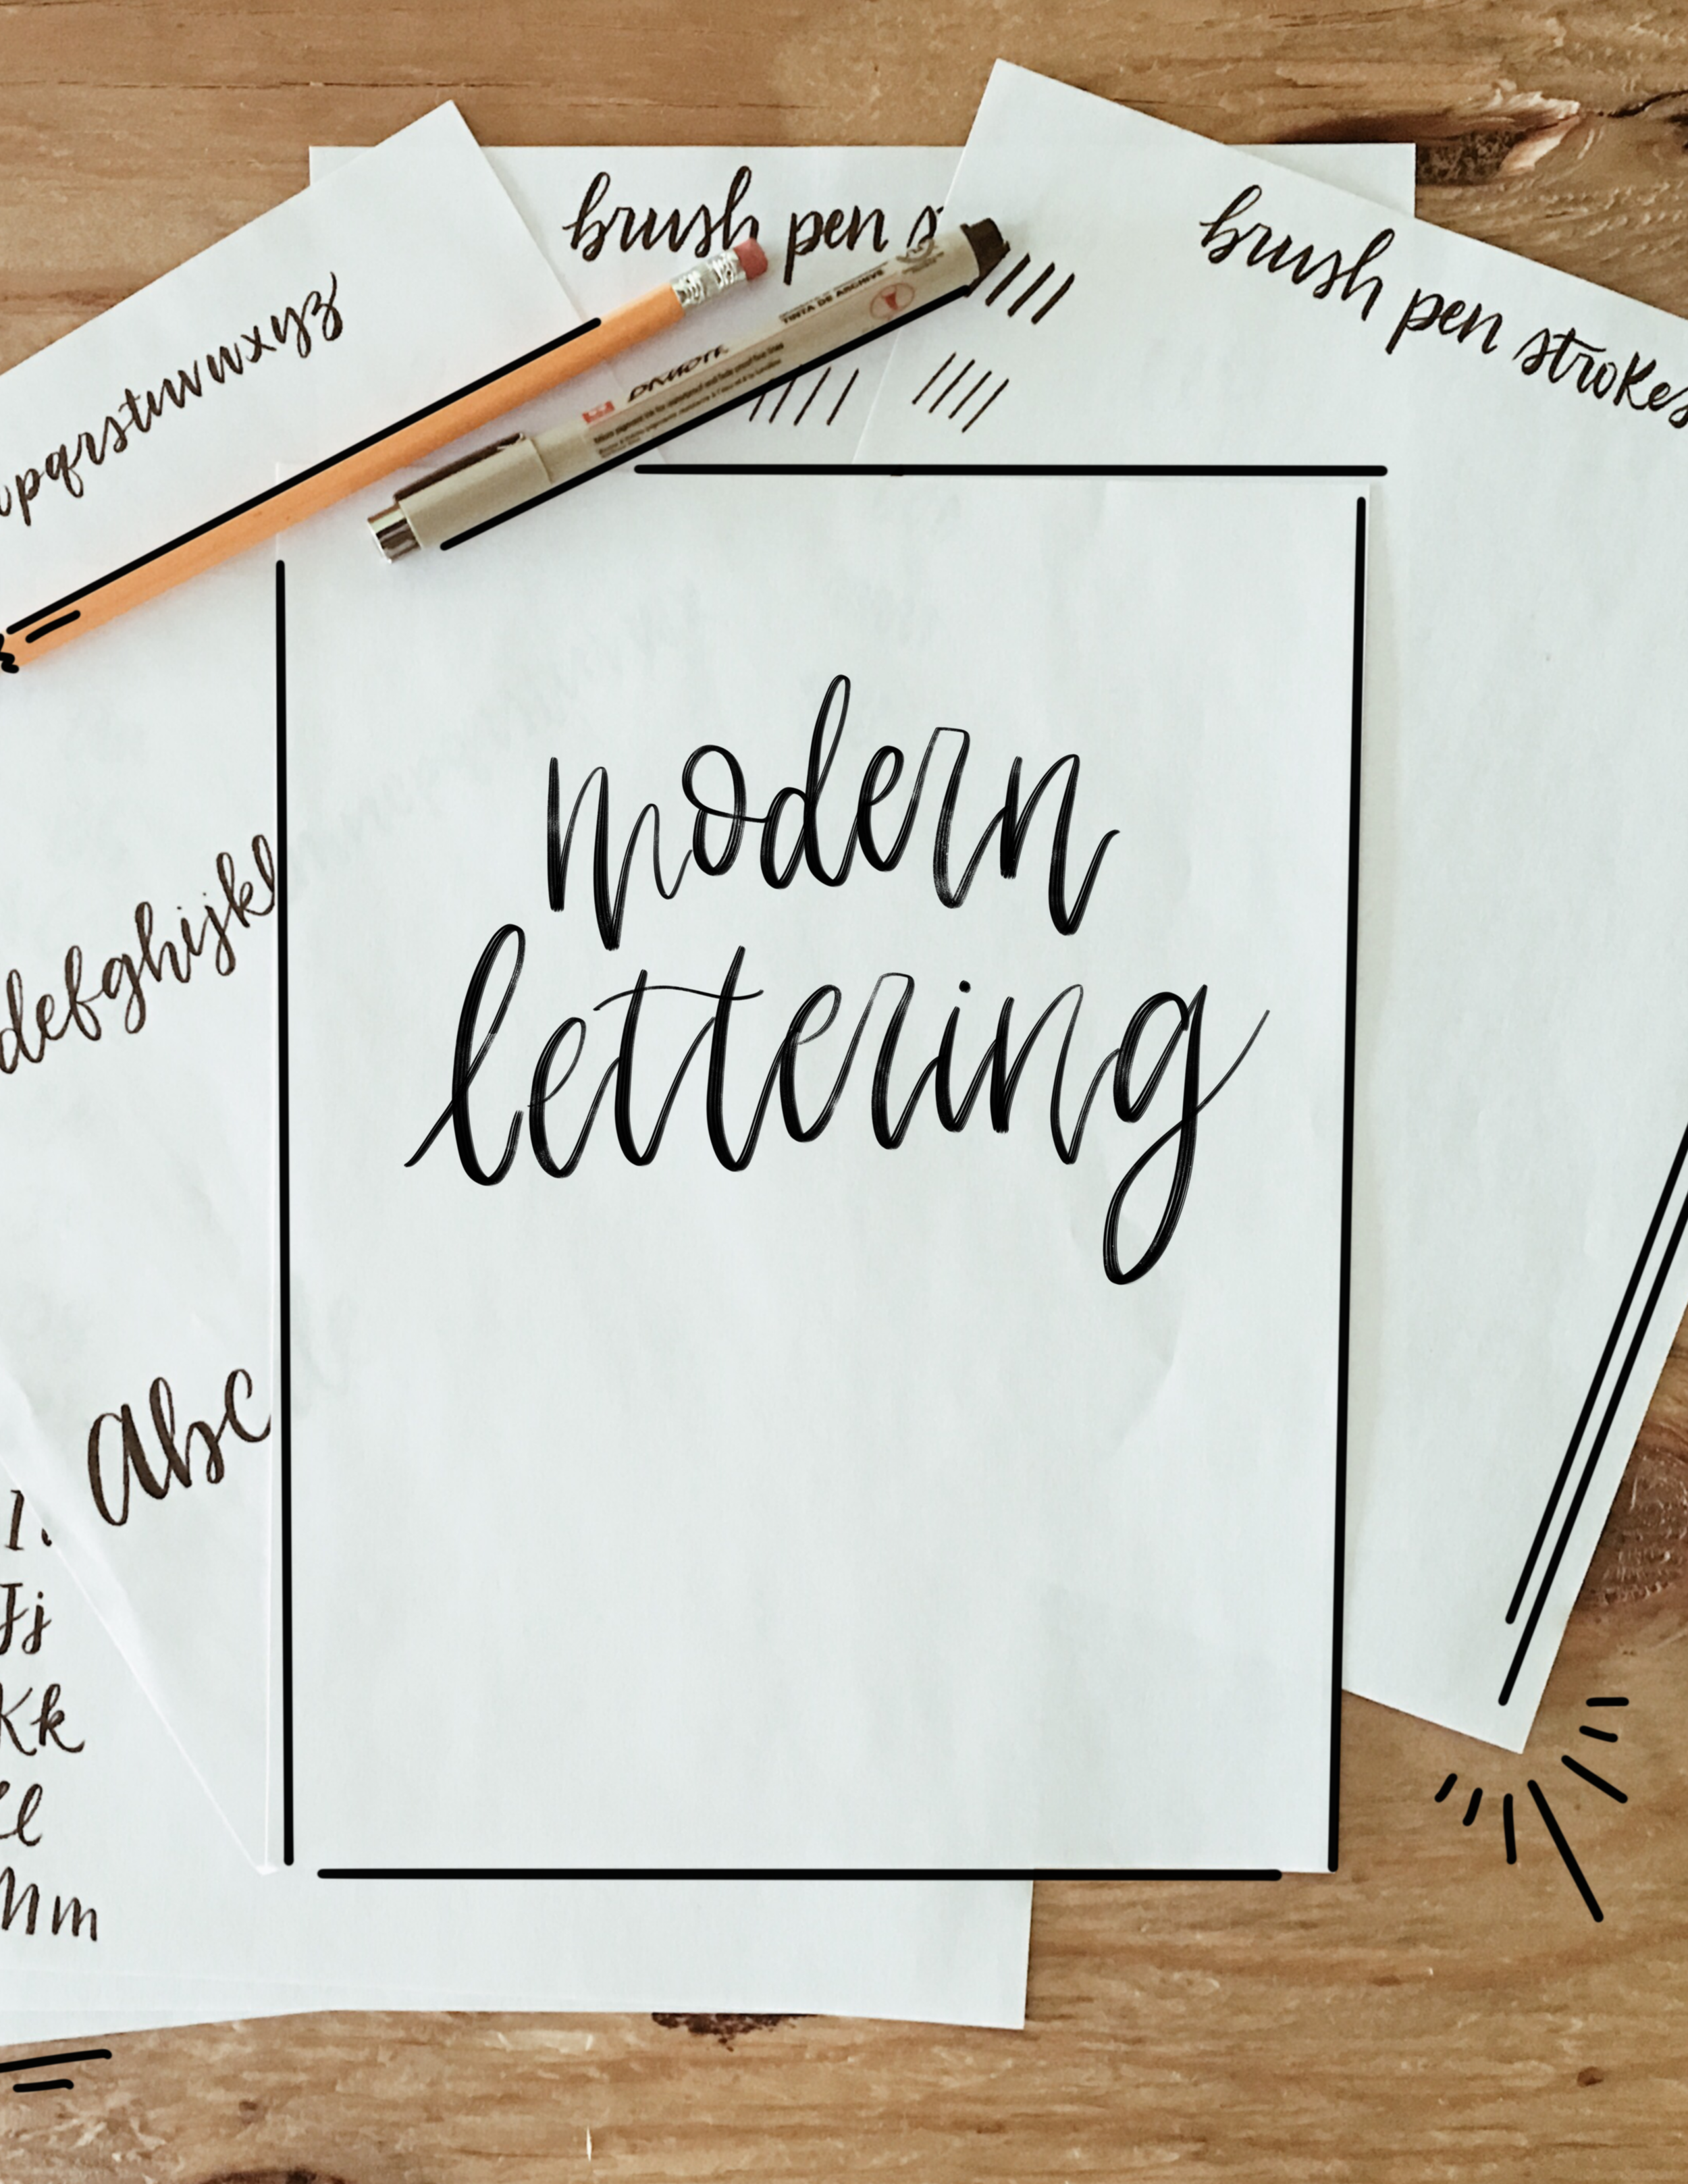 brush pen s
brush pen strokes
pqrstuvwxyz
TINTA DE ARCHIVE
modern
lettering
defghijkl
abc
I.
Jj
Kk
Ll
Mm